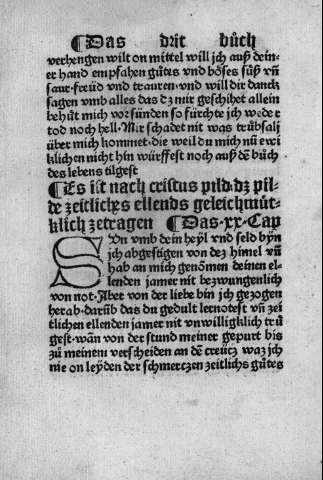 ¶Das drit bůch
verhengen wilt on mittel will jch auß dein-
er hand empfahen gůtes vnd böses süß vñ
saur freüd vnd trauren · vnd will dir danck
sagen vmb alles das dz mir geschihet allein
behüt mich vor sünden so fürchte jch weder
tod noch hell · Mir schadet nit was trübsalj
über mich kommet · die weil du mich nũ ewi
klichen nicht hin würffest noch auß dẽ bůch
des lebens tilgest
¶Es ist nach cristus pild · dz pil-
de zeitlichs ellends geleichmüt-
klich zetragen ¶Das · xx · Cap
SVn vmb dein heyl vnd seld byn
jch abgestigen von dez himel vñ
hab an mich genõmen deinen el-
lenden jamer nit bezwungenlich
von not · Aber von der liebe bin jch gezogen
herab · darũb das du gedult lernotest vñ zei
tlichen ellenden jamer nit vnwilligklich trü
gest · wãn von der stund meiner gepurt bis
zů meinem verscheiden an dẽ creücz waz jch
nie on leyden der schmerczen zeitlichs gůtes